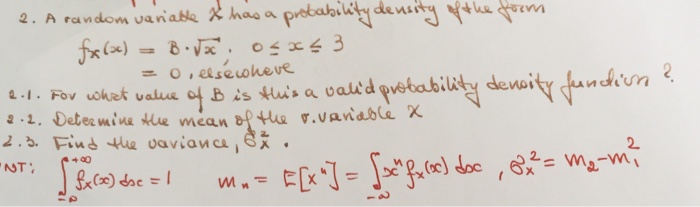 2. A random variable X has a probability density of the form
fx(x) = B·√x, 0 ≤ x ≤ 3
= 0, elsewhere
2.1. For what value of B is this a valid probability density function?
2.2. Determine the mean of the r.variable X
2.3. Find the variance, σ²x.
NT: ∫_{-∞}^{+∞} fx(x) dx = 1 mₙ = E[xⁿ] = ∫_{-∞} xⁿ fx(x) dx, σx² = m₂-m₁²